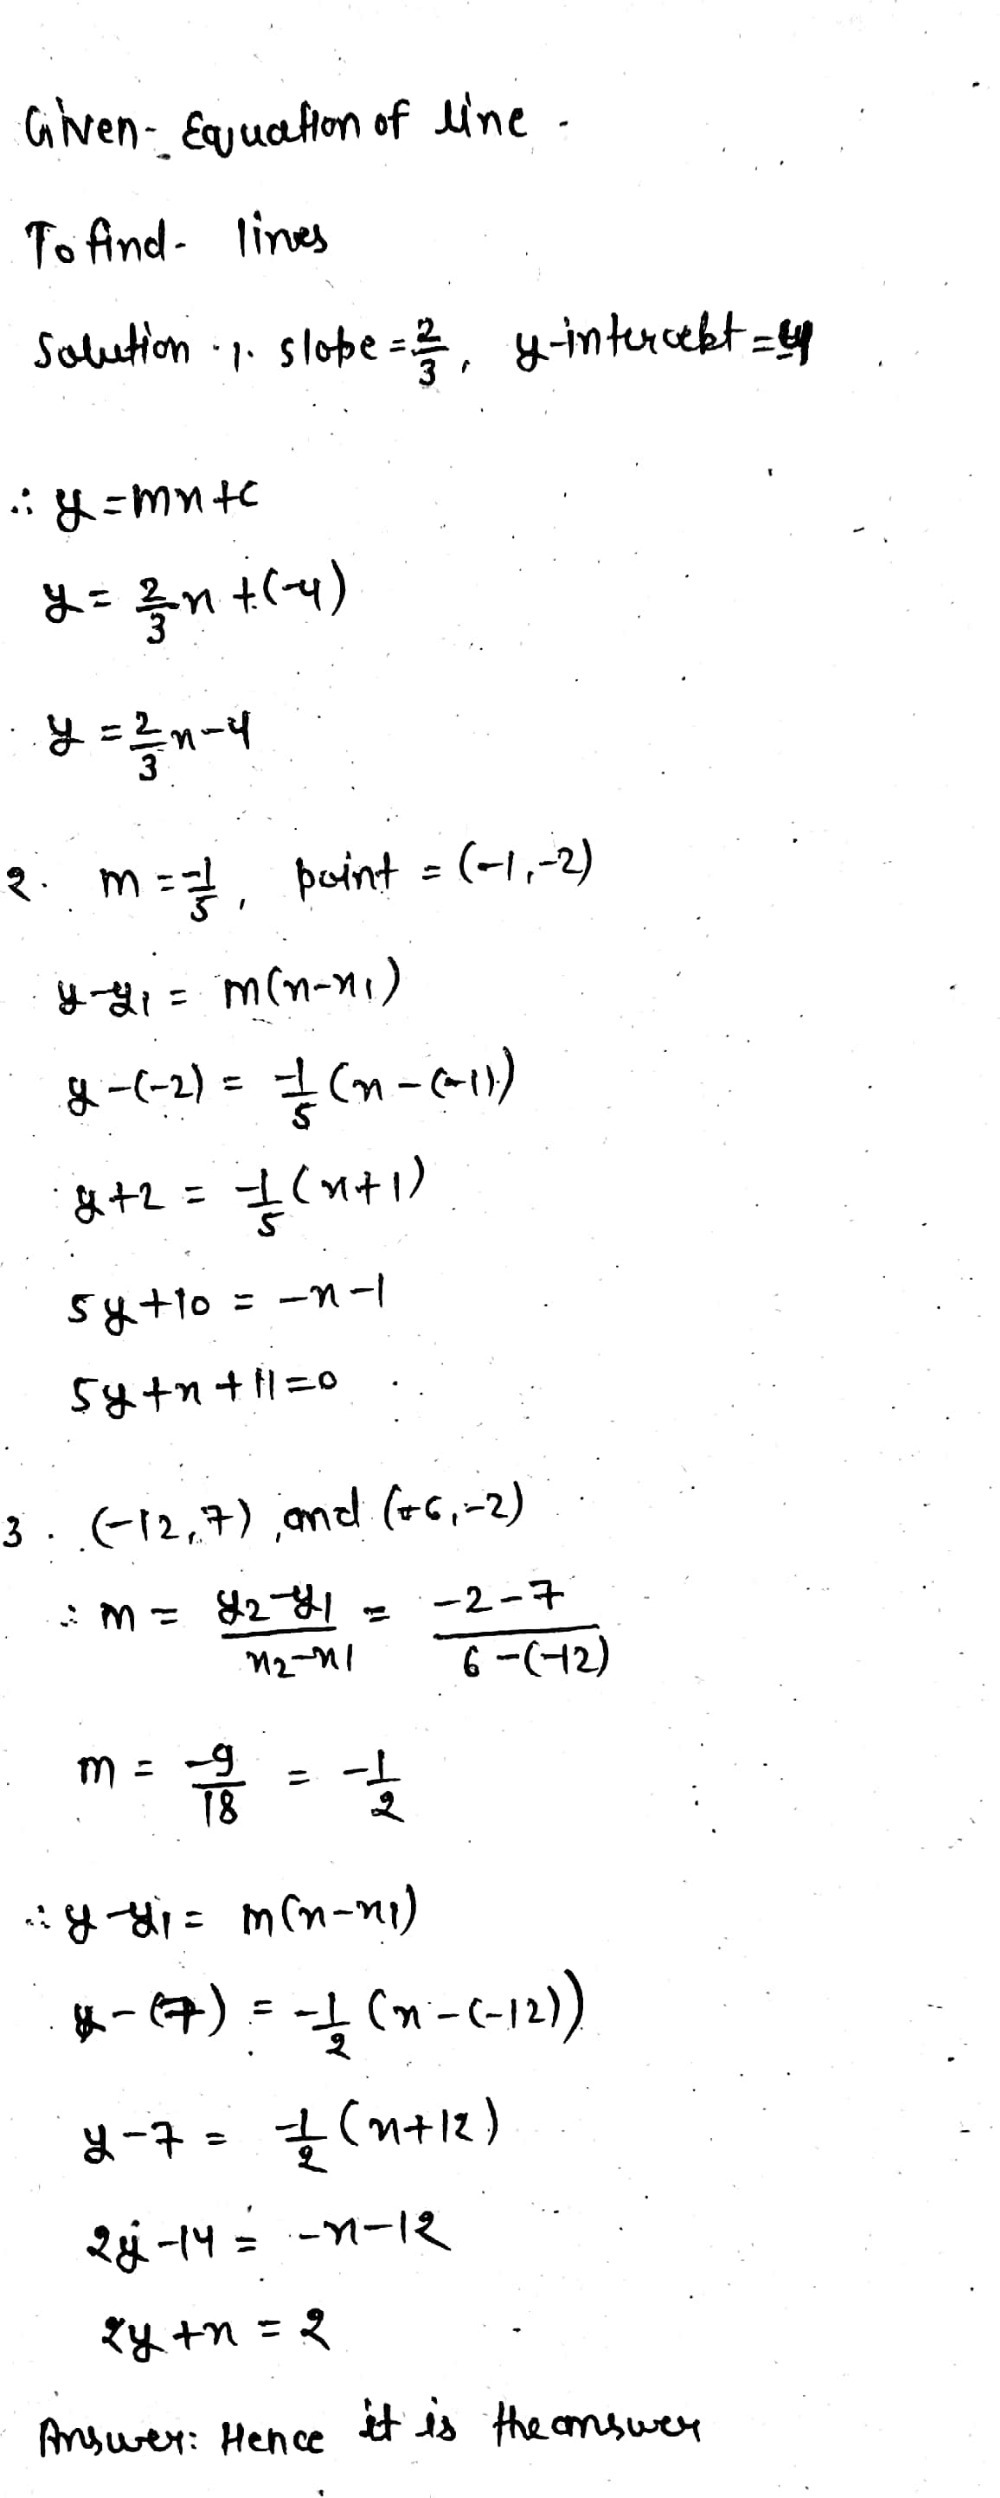 Given- Equation of line -
To find- lines
Solution 1. slope = 2/3, y-intercept =
∴ y = mx + c
y = 2/3 x + (-4)
y = 2/3 x - 4
2. m = -1/5, point = (-1, -2)
y - y1 = m(x - x1)
y - (-2) = -1/5 (x - (-1))
y + 2 = -1/5 (x + 1)
5y + 10 = -x - 1
5y + x + 11 = 0
3. (-12, 7) and (+6, -2)
∴ m = y2 - y1 / x2 - x1 = -2 - 7 / 6 - (-12)
m = -9/18 = -1/2
∴ y - y1 = m(x - x1)
y - (7) = -1/2 (x - (-12))
y - 7 = -1/2 (x + 12)
2y - 14 = -x - 12
2y + x = 2
Answer: Hence it is the answer